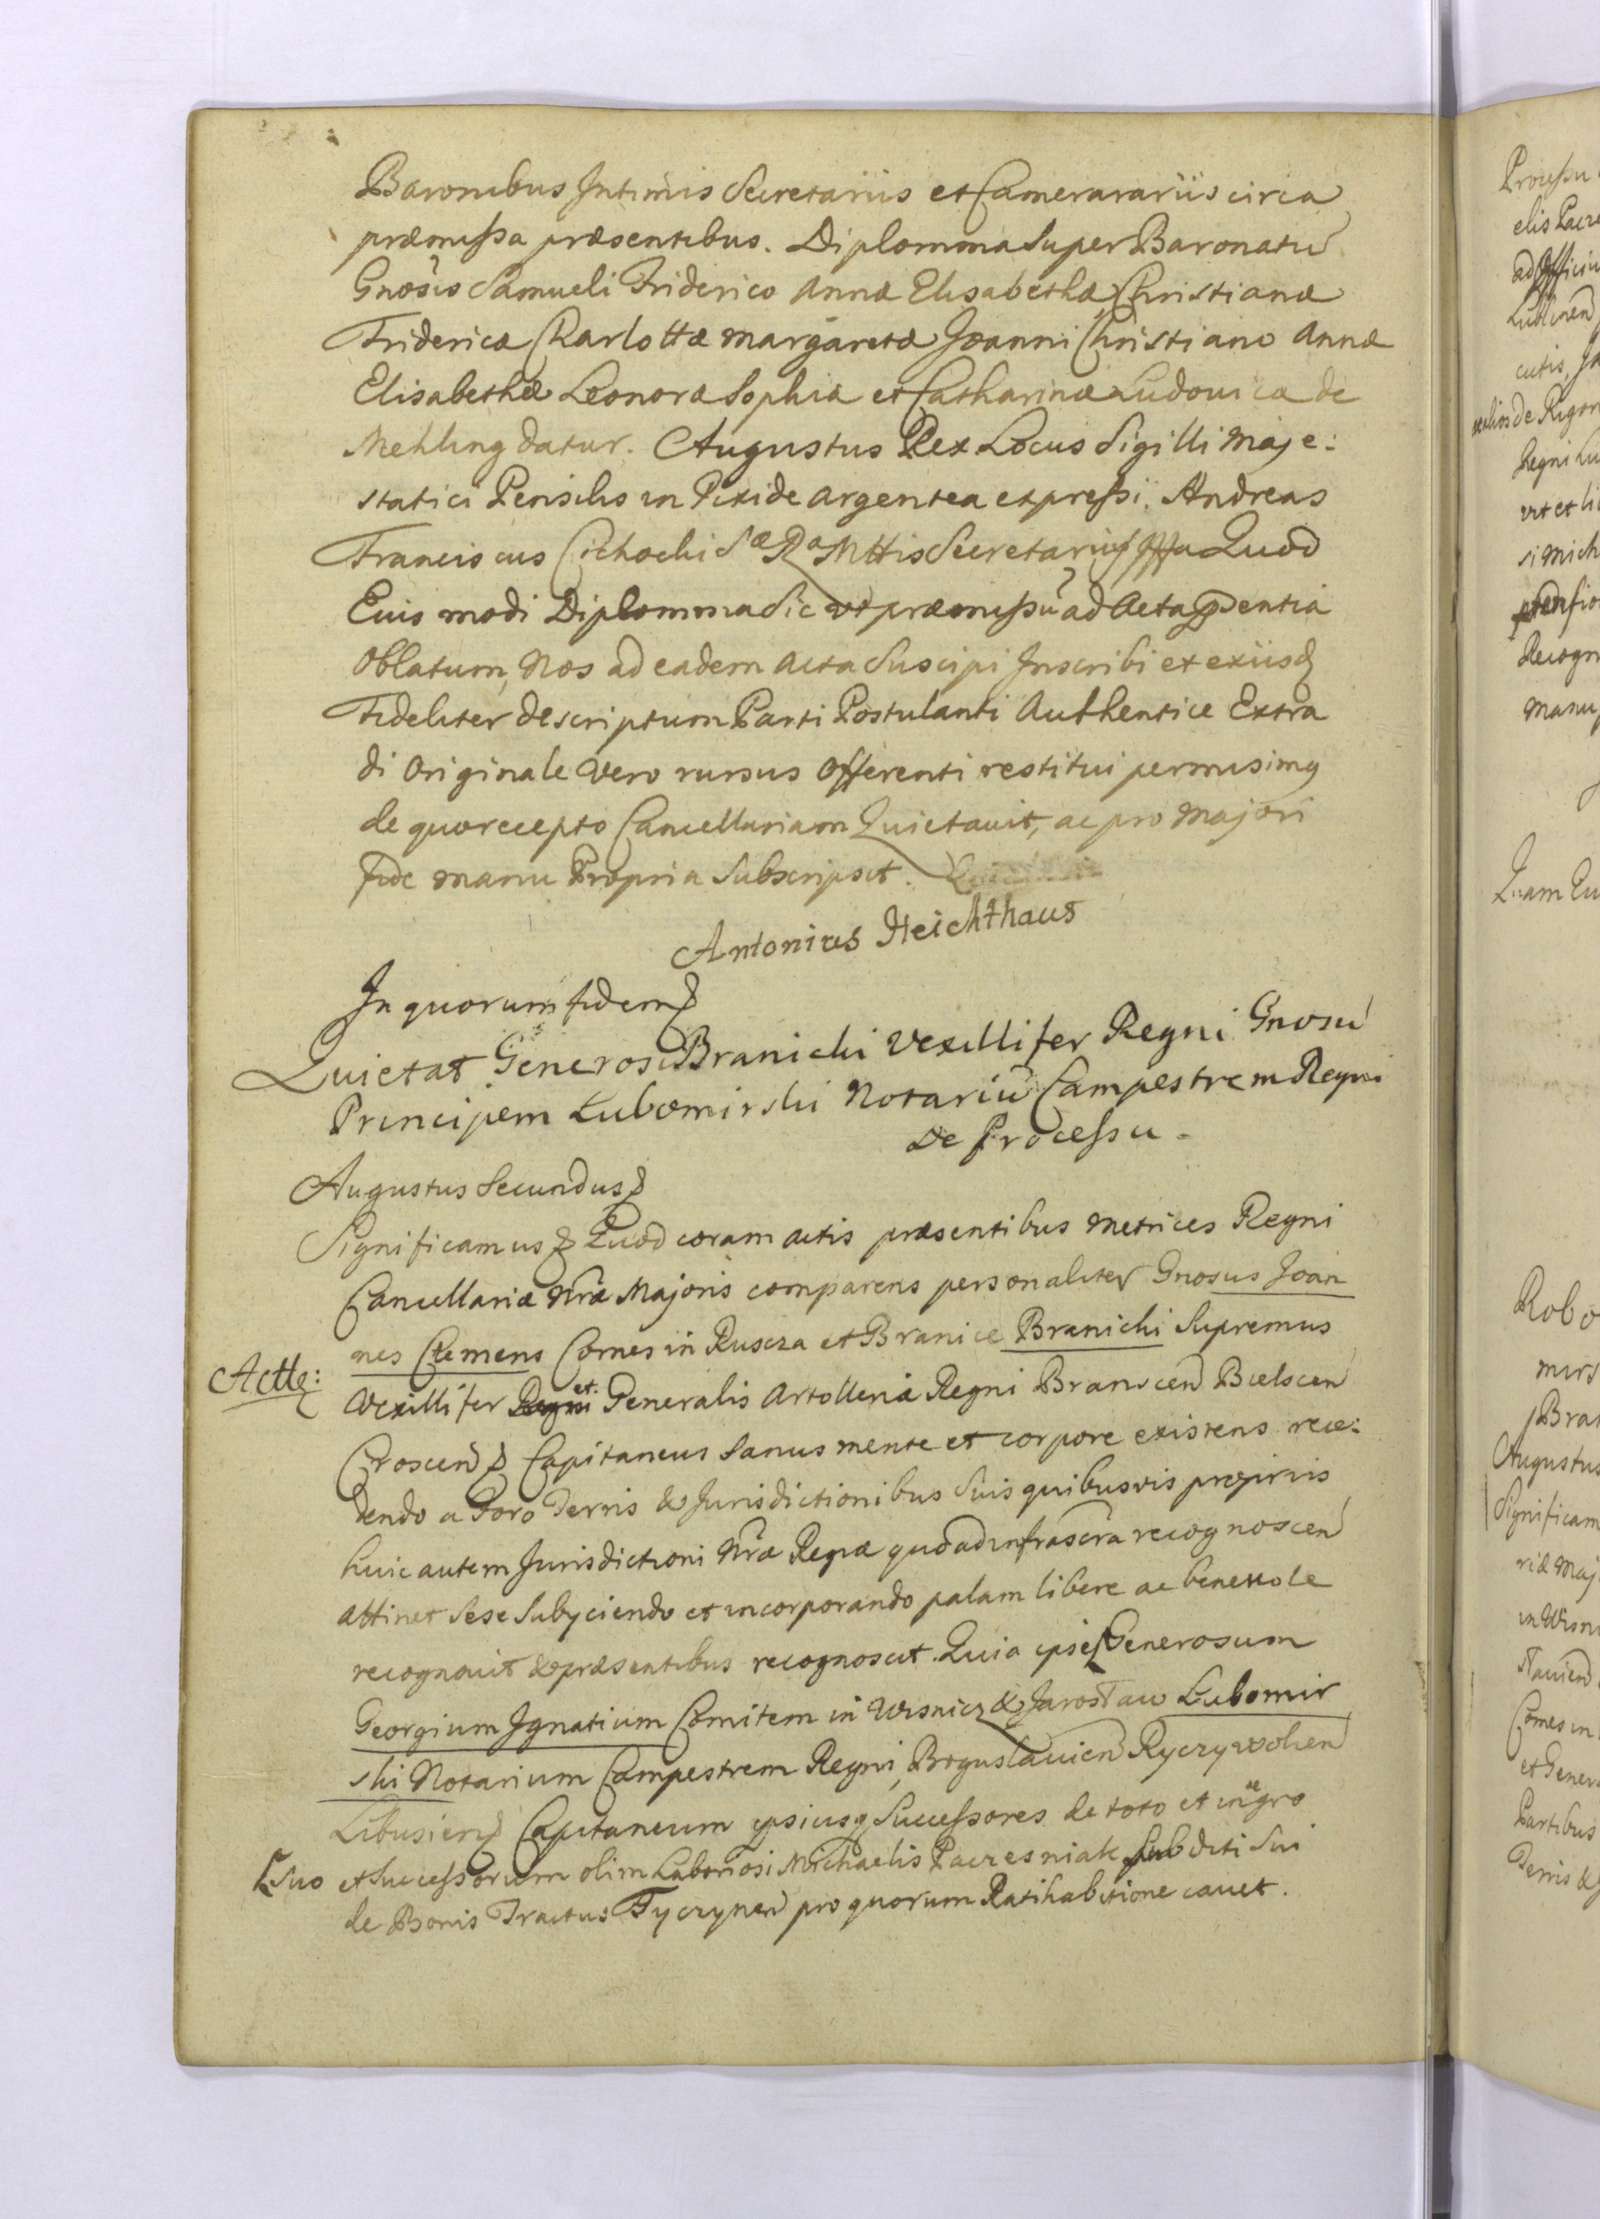 Baronibus Intimis Secretariis et Camerarariis circa
præmissa præsentibus. Diplomma Super Baronatu
Gnosis Samueli Friderico Annæ Elisabethæ Christianæ
Fridericæ Charlottæ Margaretæ Joanni Christiano Annæ
Elisabethæ Leonoræ Sophiæ et Catharinæ Ludovicæ de
Mehling datur. Augustus Rex Locus Sigilli Maje:
statici Pensilis in Pixide argentea expressi. Andreas
Franciscus Cichocki Sæ Ræ Mttis Secretarius Quod
Euis modi Diplomma Sic ut præmissū ad Acta pñsentia
Oblatum, Nos ad eadem Acta Suscipi Inscribi et exiisq
Fideliter descriptum Parti Postulanti Authentice Extra
di Originale Vero rursus Offerenti restitui permisimq
de quo recepto Cancellariam Quietavit, ac pro Majori
fide manu Propria Subscripsit.
Antonius Heichthaus
In quorum fidem
Quietat Generos Branicki Vexillifer Regni Gnosū
Principem Lubomirski Notariū Campestrem Regni
De Processu.
Augustus Secundus
Significamus Quod coram actis præsentibus Metrices Regni
Cancellariæ Nræ Majoris comparens personaliter Gnosus Joan
nes Clemens Comes in Ruscza et Branice Branicki Supremus
Acttq:
Vexillifer Regni et Generalis Artolleriæ Regni Branscen Bielscen
Croscen Capitaneus Sanus mente et corpore existens rece:
dendo a Foro Terris & Jurisdictionibus Suis quibusvis propriis
huic autem Jurisdictioni Nræ Regiæ quoad infrascra recognoscen
attinet Sese Subyciendo et incorporando palam libere ac benevole
recognovit & præsentibus recognoscit. Quia ipse Generosum
Georgium Ignatium Comitem in Wisnicz & Jarosław Lubomir
ski Notarium Campestrem Regni, Boguslavien Ryczywolien
Libusien Capitaneum ipsiusq Successores de toto et integro
Suo et Successorum olim Laboriosi Michaelis Pacresniak Subditi Sui
de Bonis Tractus Tyczynen pro quorum Ratihabitione cavet.
Processu
elis Pacre
ad Officiu
Lublinen
cutis, Ja
de Rigor
Regni Lu
vit et li
si Mich
Recogn
manu
Quam Eu
Robo
mirs
Bran
Augustus
Significam
riæ Maj
in Wisni
slavien
Comes in
et Genera
Partibus
Terris &